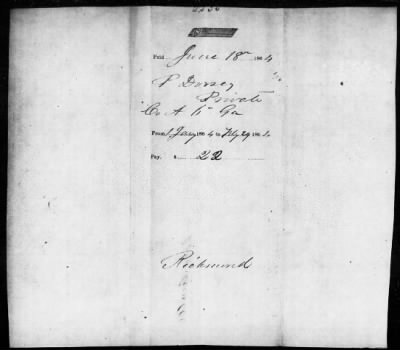 Paid June 18th 1864
P Dorsey
Private
Co A 6" Ga
From 1 Jany 1864 to Feby 29 1864
Pay, $ 22
Richmond